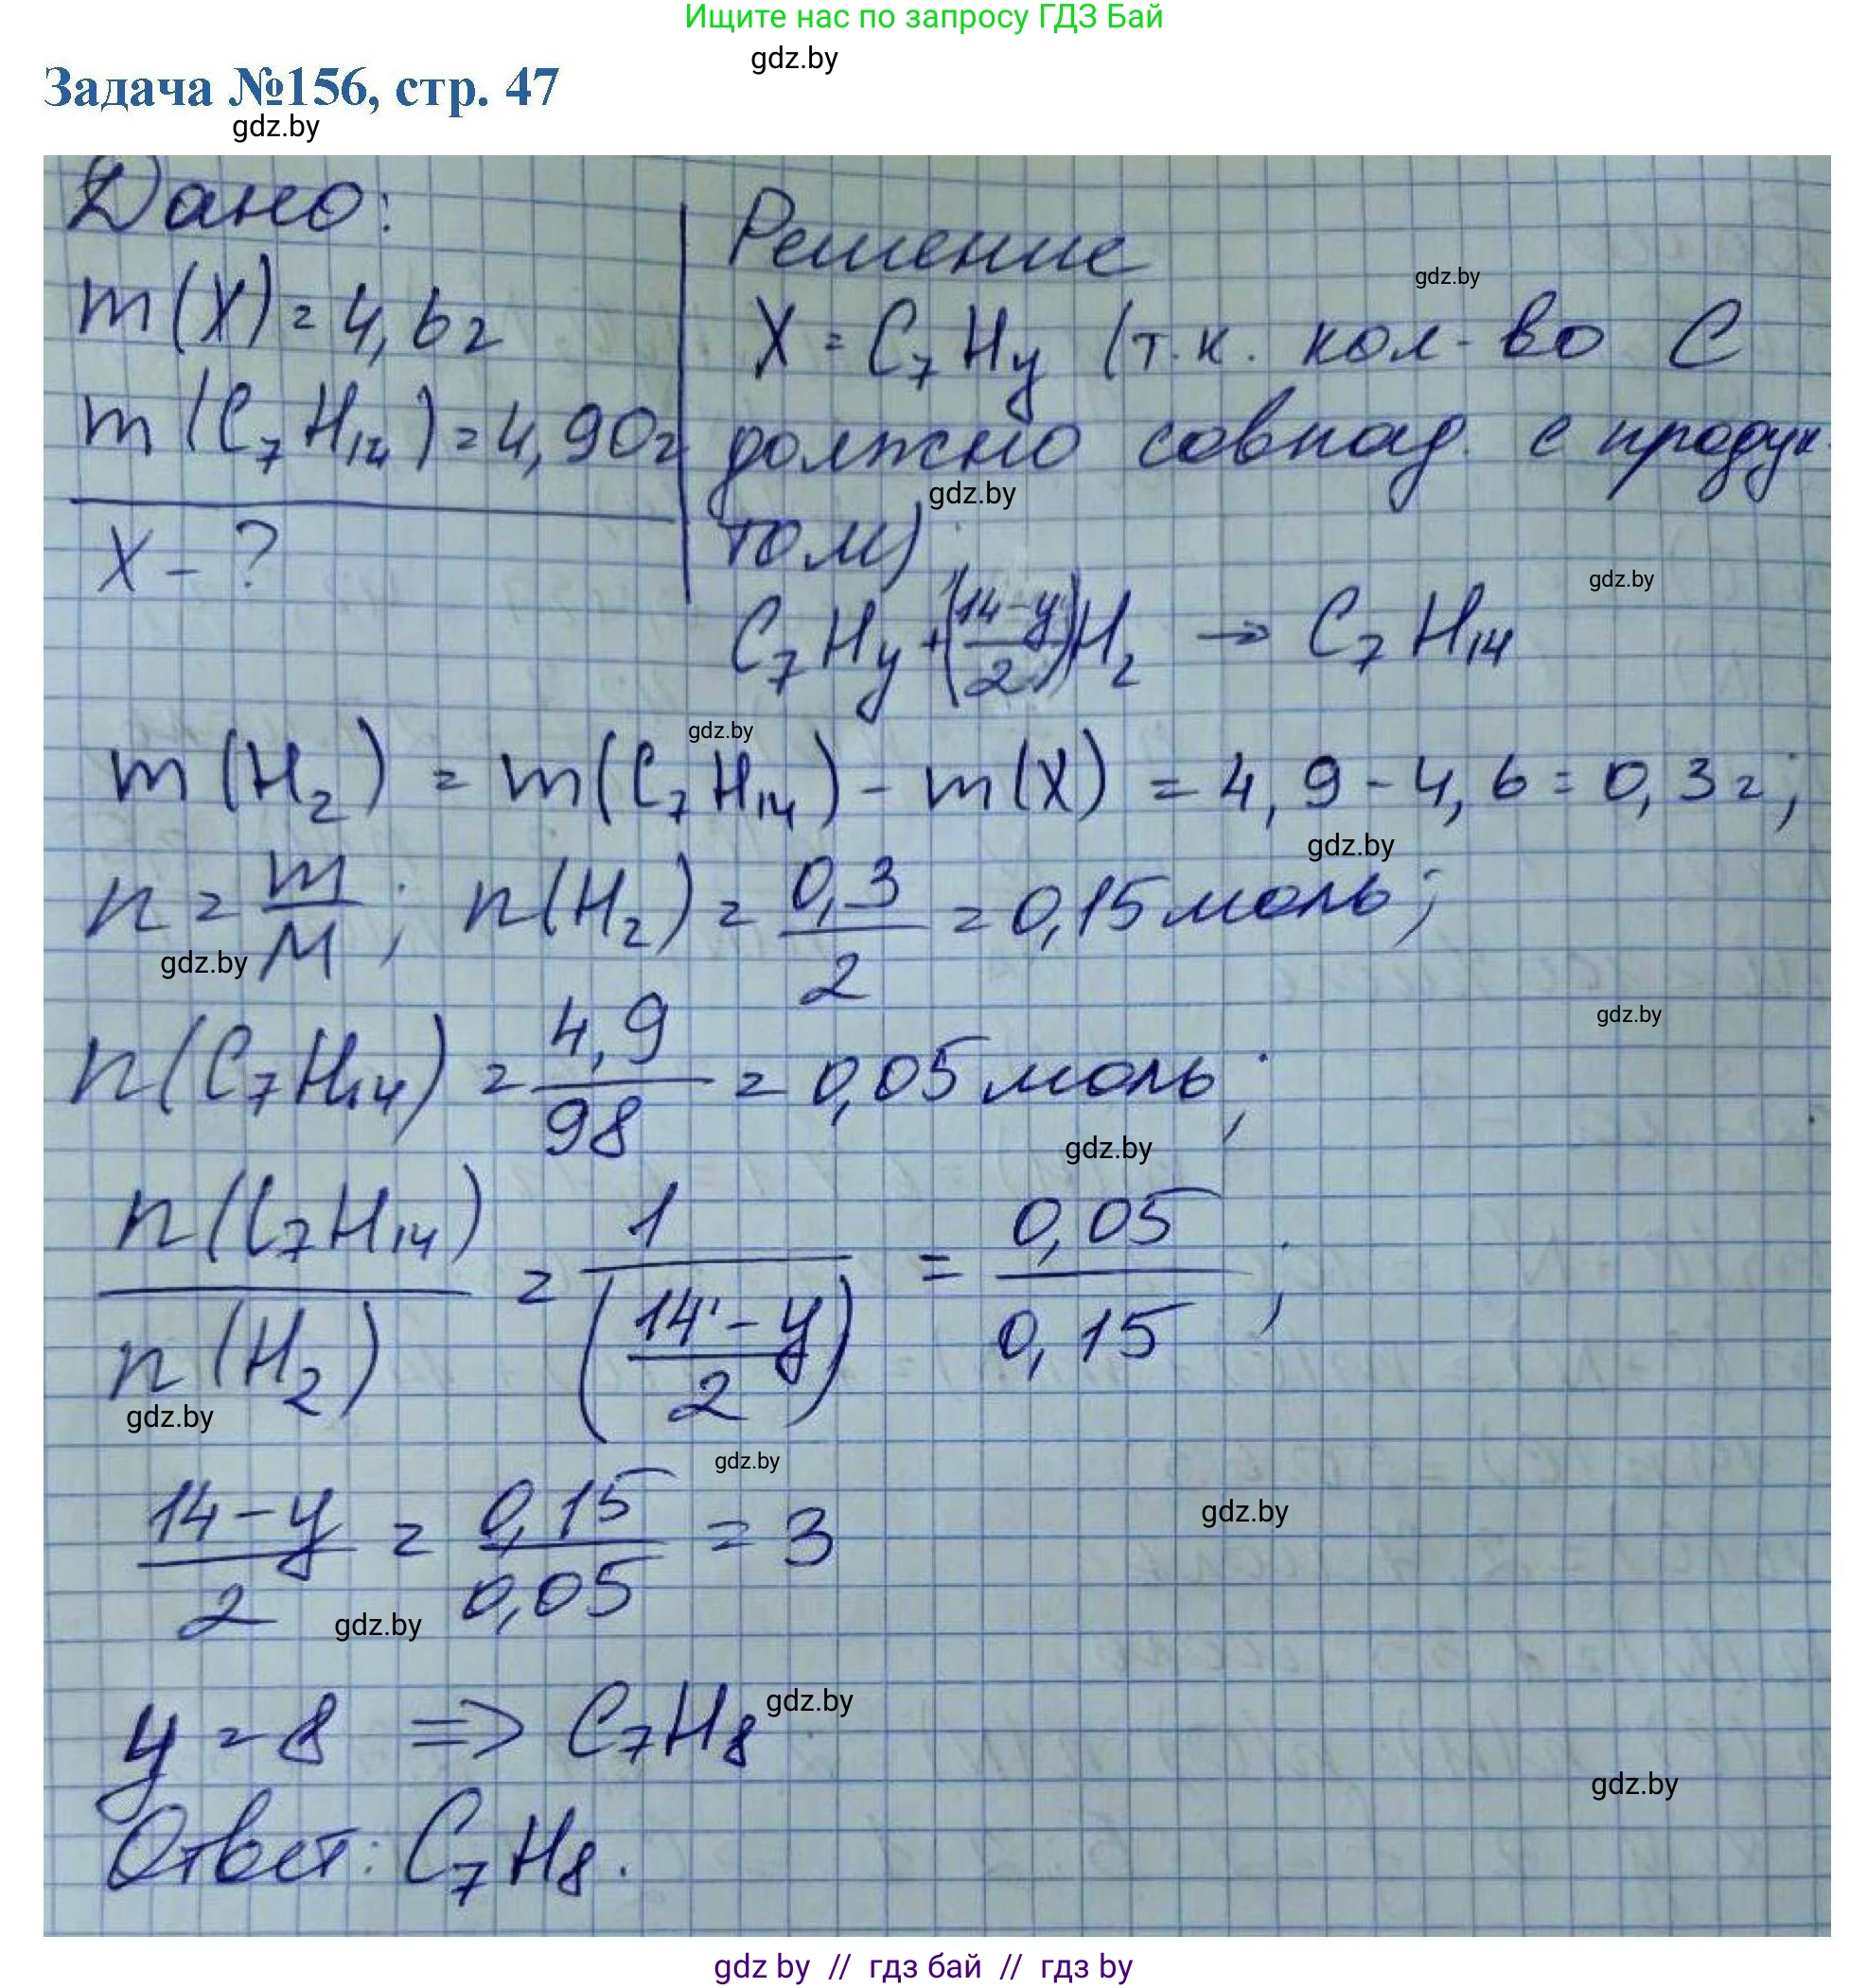 Ищите нас по запросу ГДЗ Бай
gdz.by
Задача №156, стр. 47
gdz.by
Дано:
m(X) = 4,6г
m(C₇H₁₄) = 4,90г
X - ?
Решение
gdz.by
X = C₇Hy (т.к. кол-во C
должно совпад. с продук-
gdz.by
том)
gdz.by
C₇Hy + ((14-y)/2)H₂ → C₇H₁₄
gdz.by
m(H₂) = m(C₇H₁₄) - m(X) = 4,9 - 4,6 = 0,3г;
gdz.by
n = m/M; n(H₂) = 0,3/2 = 0,15 моль;
gdz.by
gdz.by
n(C₇H₁₄) = 4,9/98 = 0,05 моль;
gdz.by
n(C₇H₁₄)/n(H₂) = 1/((14-y)/2) = 0,05/0,15;
gdz.by
gdz.by
gdz.by
(14-y)/2 = 0,15/0,05 = 3
gdz.by
y = 8 => C₇H₈
gdz.by
gdz.by
Ответ: C₇H₈.
gdz by // гдз бай // гдз by